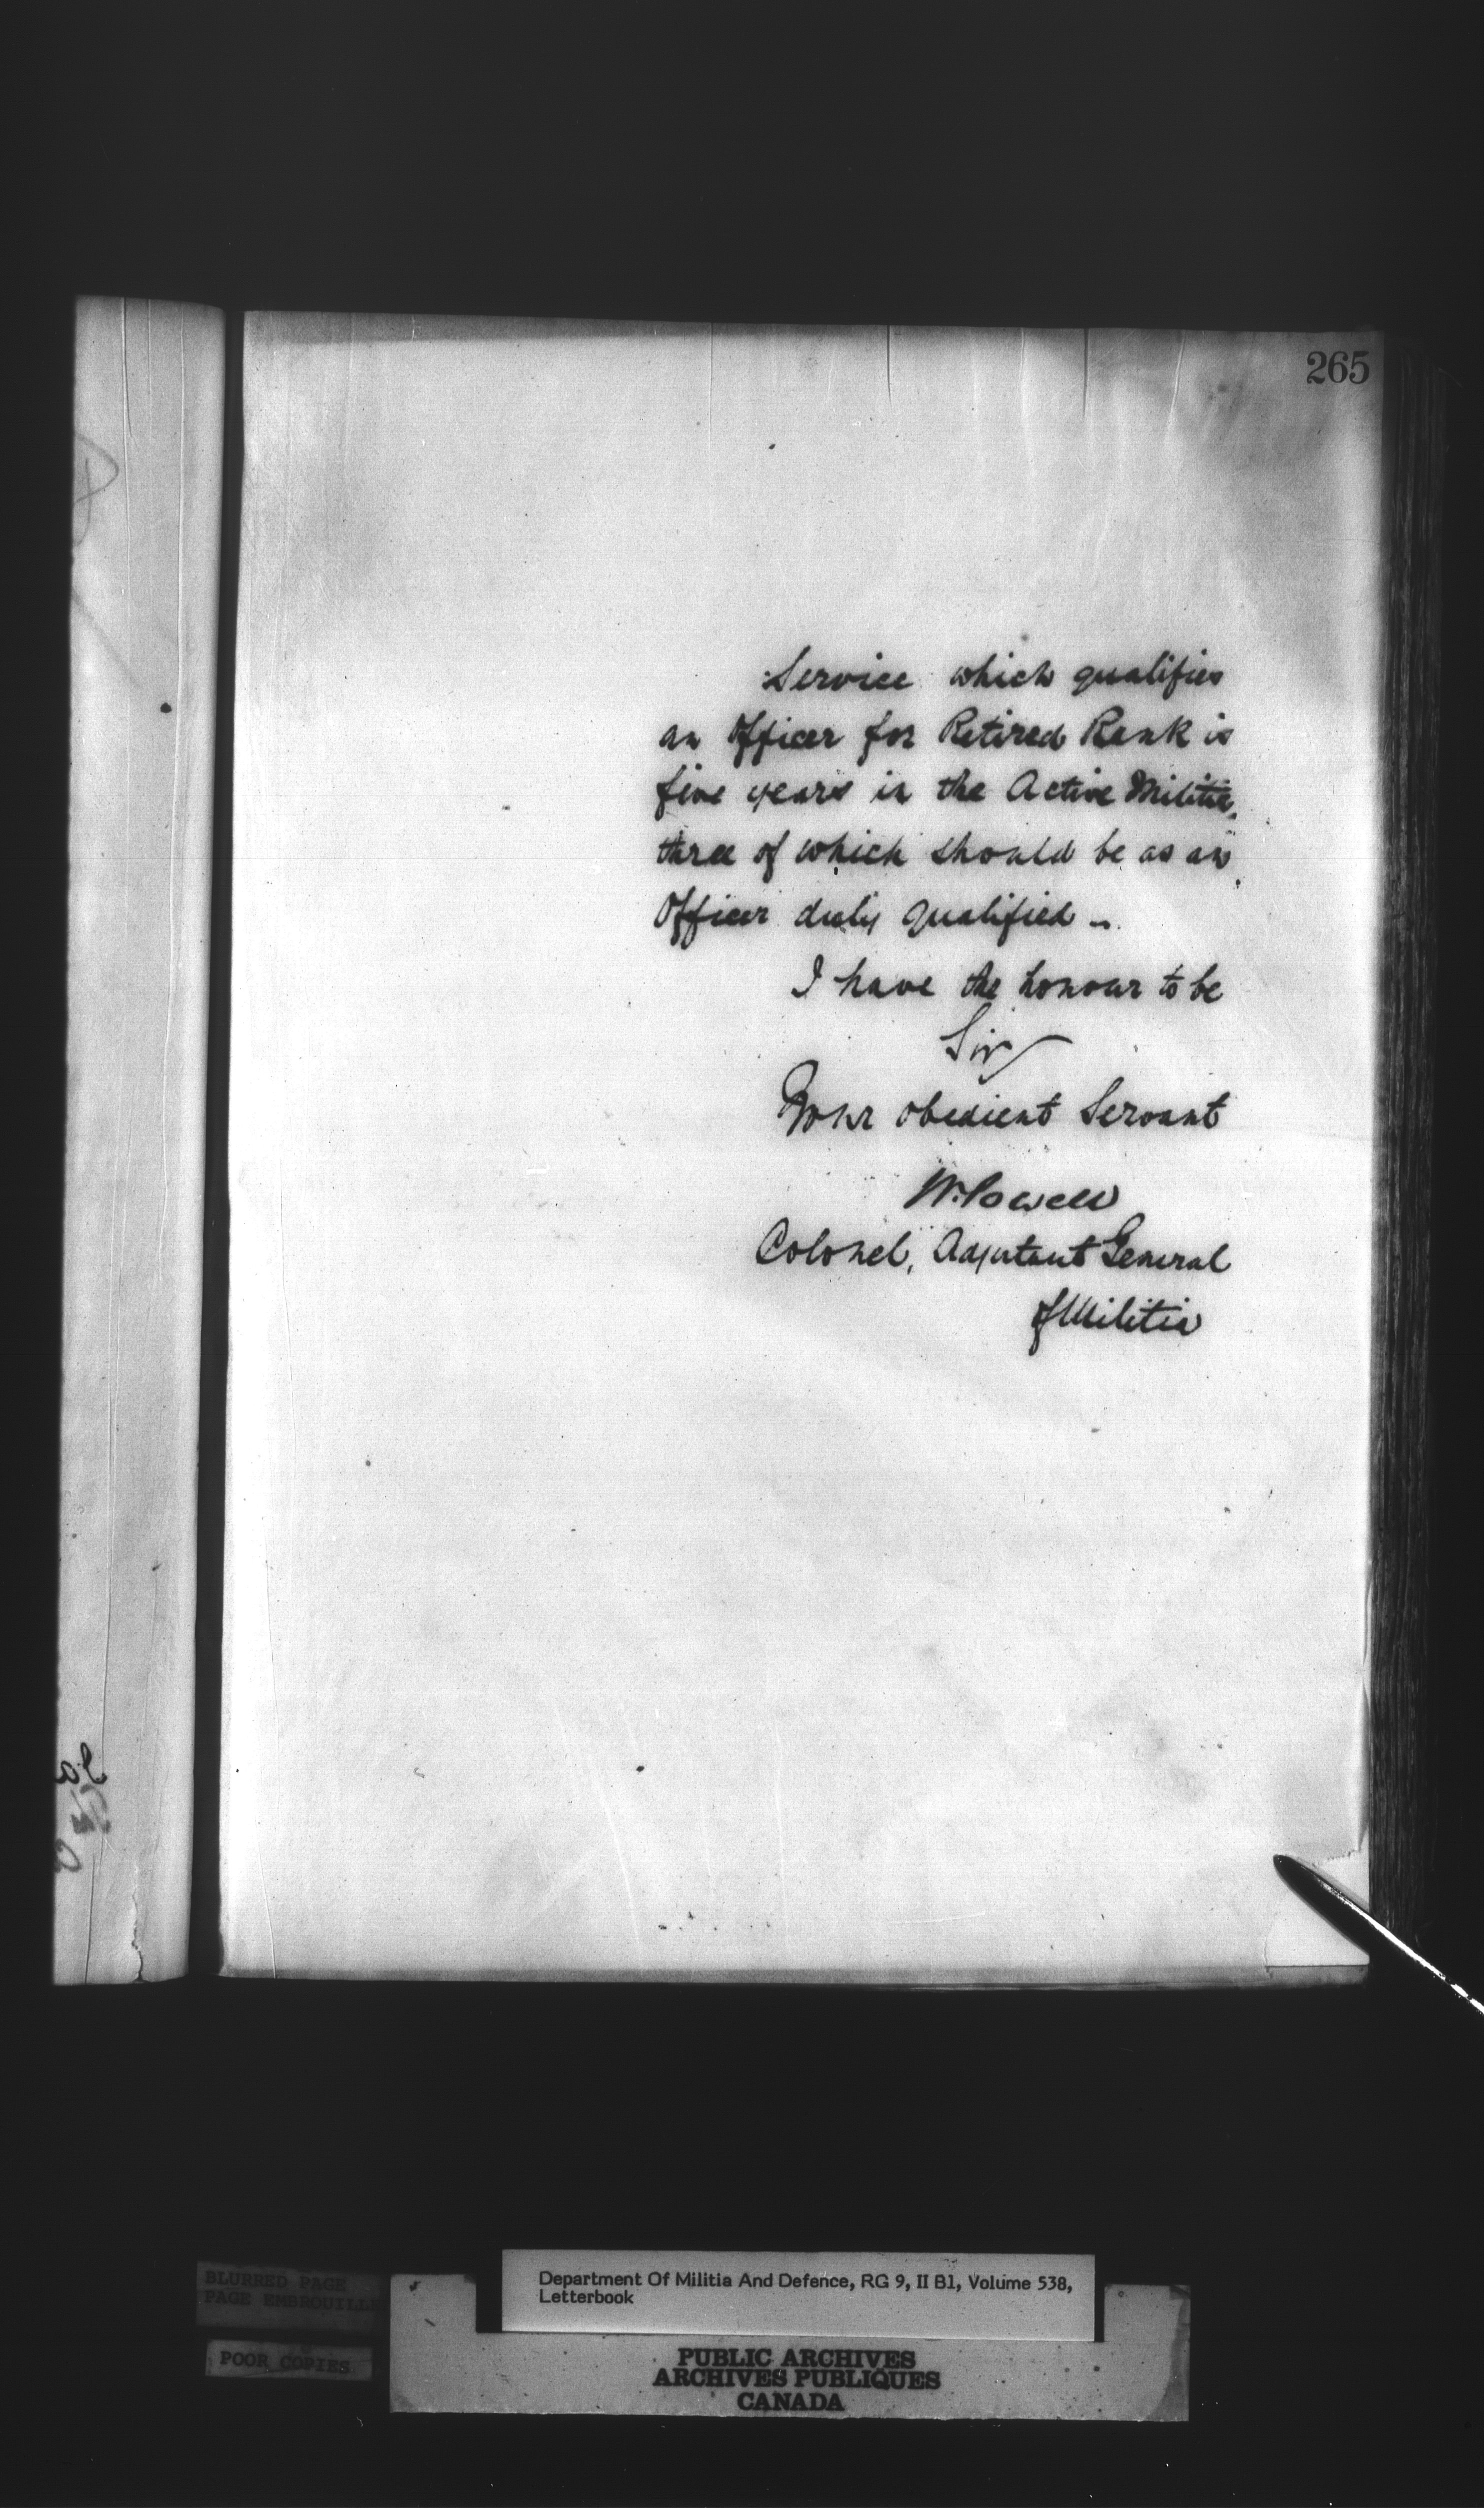 265
Service which qualifies
an Officer for Retired Rank is
five years in the Active Militia,
three of which should be as an
Officer duly qualified –
I have the honour to be
Sir
Your obedient Servant
W. Powell
Colonel, Adjutant General
of Militia
BLURRED PAGE
PAGE EMBROUILLE
POOR COPIES
Department Of Militia And Defence, RG 9, II B1, Volume 538,
Letterbook
PUBLIC ARCHIVES
ARCHIVES PUBLIQUES
CANADA